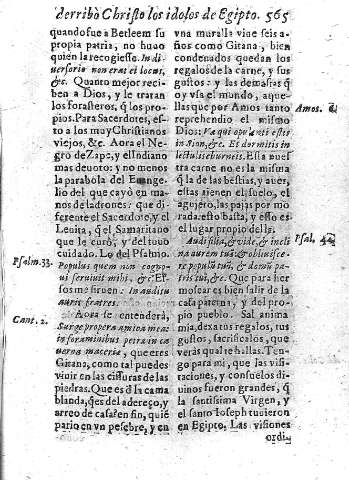 derribò Christo los idolos de Egipto. 565
quando fue a Berleem su
propia patria, no huuo
quien la recogiesse. In di
uersorio non erat ei locus,
&c. Quanto mejor reci-
ben a Dios, y le tratan
los forasteros, q̃ los pro-
pios. Para Sacerdotes, es-
to a los muy Christianos
viejos, &c. Aora el Ne-
gro de Zape, y el Indiano
mas deuoto: y no menos
la parabola del Euange-
lio del que cayò en ma-
nos de ladrones: que di-
ferente el Sacerdote, y el
Leuita, q̃ el Samaritano
que le curò, y del tuuo
cuidado. Lo del Psalmo.
Psalm. 33.
Populus quem non cogno-
ui seruiuit mihi, &c. Es-
sos me siruen: In auditu
auris
Aora se entenderà,
Cant. 2.
Surge propera amica mea
in foraminibus petra in ca
uerna maceria, que eres
Gitana, como tal puedes
viuir en las cissuras de las
piedras. Que es a la cama
blanda, q̃ es del adereço, y
arreo de casa? en fin, quiē
pario en vn pesebre, y en
vna muralla viue seis a-
ños como Gitana, bien
condenados quedan los
regalos de la carne, y sus
gustos: y las demasias q̃
oy vsa el mundo, aque-
llas que por Amos tanto
Amos.
reprehendio el mismo
Dios: Væ qui opulenti estis
in Sion, &c. Et dormitis in
lectulis eburneis. Esta nues
tra carne no es la misma
q̃ la de las bestias, y aues,
estas tienen el suelo, el
agujero, las pajas por mo
rada: esto basta, y esso es
el lugar propio dells.
Audi filia, & vide, & incli
Psal.
na aurem tuã: & obliuisce-
re populũ tuũ, & domũ pa-
tris tui, &c. Que para her
mosear es bien salir de la
casa paterna, y del pro-
pio pueblo. Sal anima
mia, dexa tus regalos, tus
gustos, sacrificalos, que
veràs qual te hallas. Ten-
go para mi, que las visi-
taciones, y consuelos di-
uinos fueron grandes, q̃
la santissima Virgen, y
el santo Ioseph tuuieron
en Egipto. Las visiones
ordi-